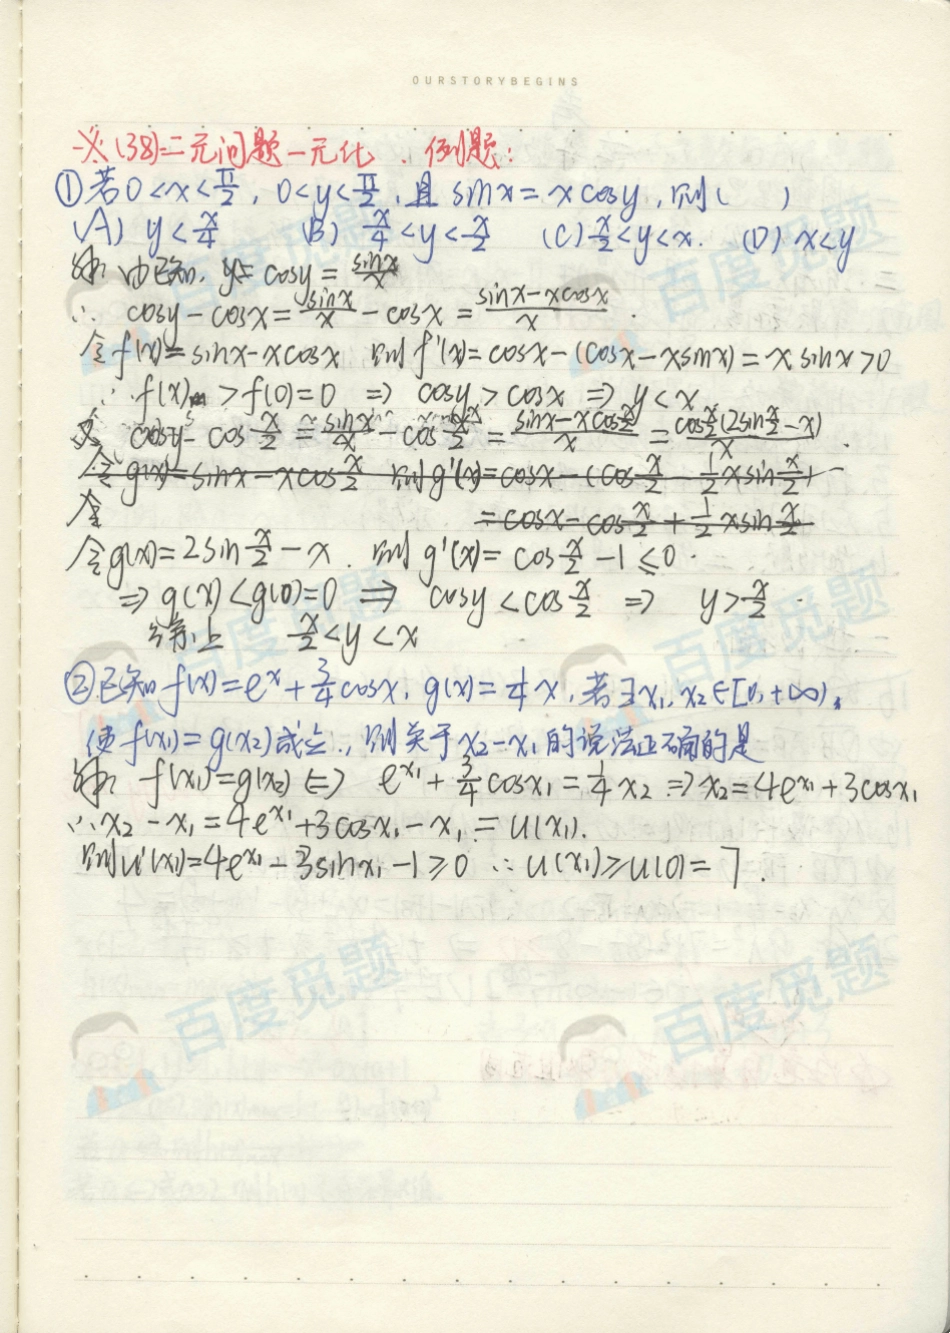 OURSTORYBEGINS
※(38)二元问题一元化、例题:
①若0<x<π/2, 0<y<π/2, 且 sinx=xcosy, 则( )
(A) y<x/4 (B) x/4<y<x/2 (C) x/2<y<x. (D) x<y
解: 由已知, cosy=sinx/x
∴ cosy-cosx=sinx/x-cosx=(sinx-xcosx)/x.
令f(x)=sinx-xcosx 则f'(x)=cosx-(cosx-xsinx)=xsinx>0
∴f(x)>f(0)=0 ⇒ cosy>cosx ⇒ y<x
又 cosy-cos x/2=sinx/x-cos x/2=(sinx-xcos x/2)/x=cos x/2(2sin x/2-x)/x.
令g(x)=sinx-xcos x/2 则g'(x)=cosx-(cos x/2-1/2 xsin x/2)
令 =cosx-cos x/2+1/2 xsin x/2
令g(x)=2sin x/2-x. 则g'(x)=cos x/2-1≤0.
⇒g(x)<g(0)=0 ⇒ cosy<cos x/2 ⇒ y>x/2.
综上 x/2<y<x
②已知f(x)=eˣ+3/4cosx, g(x)=1/4x, 若∃x₁,x₂∈[0,+∞),
使f(x₁)=g(x₂)成立, 则关于x₂-x₁的说法正确的是
解: f(x₁)=g(x₂)⇔ e^x₁+3/4cosx₁=1/4x₂ ⇒x₂=4e^x₁+3cosx₁
∴x₂-x₁=4e^x₁+3cosx₁-x₁=u(x₁).
则u'(x₁)=4e^x₁-3sinx₁-1≥0 ∴u(x₁)≥u(0)=7.
百度觅题
百度觅题
百度觅题
百度觅题
百度觅题
百度觅题